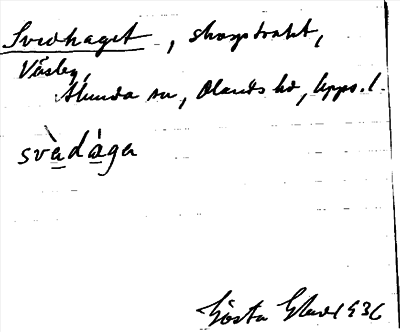 Svedhaget, skogstrakt,
Väsby,
Alunda sn, Olands hd, Upps. l.
svàdàga
Gösta 1936